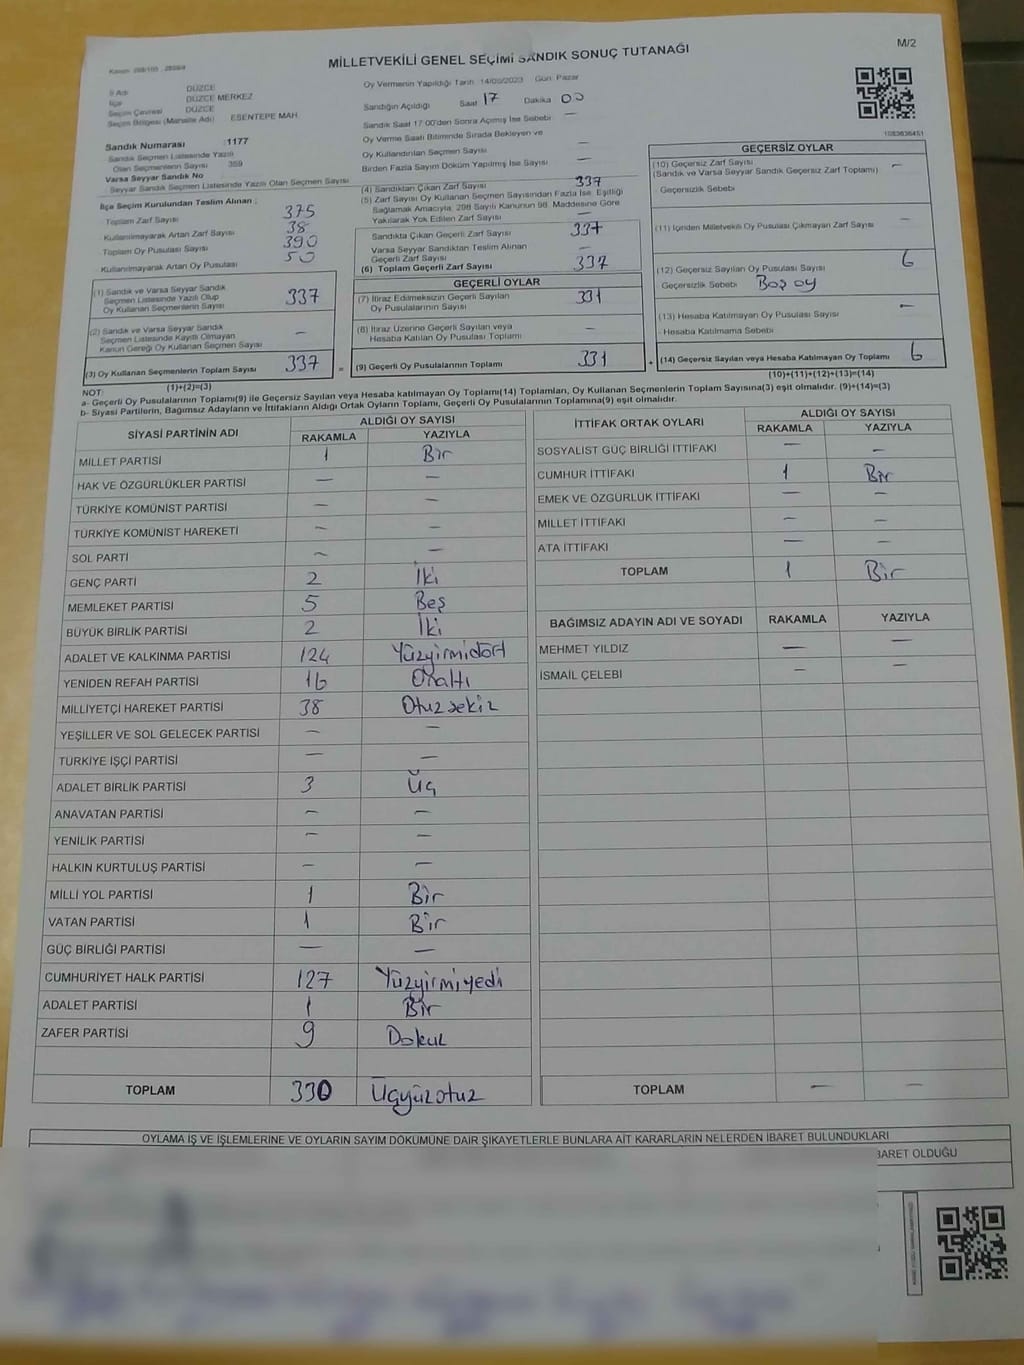 M/2
MİLLETVEKİLİ GENEL SEÇİMİ SANDIK SONUÇ TUTANAĞI
İl Adı DÜZCE
İlçe DÜZCE MERKEZ
Seçim Çevresi DÜZCE
Seçim Bölgesi (Mahalle Adı) ESENTEPE MAH.
Sandık Numarası :1177
Sandık Seçmen Listesinde Yazılı
Olan Seçmenlerin Sayısı : 359
Varsa Seyyar Sandık No
Seyyar Sandık Seçmen Listesinde Yazılı Olan Seçmen Sayısı
Oy Vermenin Yapıldığı Tarih: 14/05/2023 Gün: Pazar
Sandığın Açıldığı Saat 17 Dakika 00
Sandık Saat 17:00'den Sonra Açılmış İse Sebebi —
Oy Verme Saati Bitiminde Sırada Bekleyen ve
Oy Kullandırılan Seçmen Sayısı —
Birden Fazla Sayım Döküm Yapılmış İse Sayısı —
1083636451
İlçe Seçim Kurulundan Teslim Alınan :
Toplam Zarf Sayısı 375
Kullanılmayarak Artan Zarf Sayısı 38
Toplam Oy Pusulası Sayısı 390
Kullanılmayarak Artan Oy Pusulası 50
(1) Sandık ve Varsa Seyyar Sandık
Seçmen Listesinde Yazılı Olup
Oy Kullanan Seçmenlerin Sayısı 337
(2) Sandık ve Varsa Seyyar Sandık
Seçmen Listesinde Kayıtlı Olmayan
Kanun Gereği Oy Kullanan Seçmen Sayısı —
(3) Oy Kullanan Seçmenlerin Toplam Sayısı 337
(1)+(2)=(3)
(4) Sandıktan Çıkan Zarf Sayısı 337
(5) Zarf Sayısı Oy Kullanan Seçmen Sayısından Fazla İse, Eşitliği
Sağlamak Amacıyla, 298 Sayılı Kanunun 98. Maddesine Göre
Yakılarak Yok Edilen Zarf Sayısı —
Sandıkta Çıkan Geçerli Zarf Sayısı 337
Varsa Seyyar Sandıktan Teslim Alınan
Geçerli Zarf Sayısı —
(6) Toplam Geçerli Zarf Sayısı 337
GEÇERLİ OYLAR
(7) İtiraz Edilmeksizin Geçerli Sayılan
Oy Pusulalarının Sayısı 331
(8) İtiraz Üzerine Geçerli Sayılan veya
Hesaba Katılan Oy Pusulası Toplamı —
= (9) Geçerli Oy Pusulalarının Toplamı 331
GEÇERSİZ OYLAR
(10) Geçersiz Zarf Sayısı —
(Sandık ve Varsa Seyyar Sandık Geçersiz Zarf Toplamı)
Geçersizlik Sebebi
(11) İçinden Milletvekili Oy Pusulası Çıkmayan Zarf Sayısı —
(12) Geçersiz Sayılan Oy Pusulası Sayısı 6
Geçersizlik Sebebi Boş oy
(13) Hesaba Katılmayan Oy Pusulası Sayısı —
Hesaba Katılmama Sebebi
+ (14) Geçersiz Sayılan veya Hesaba Katılmayan Oy Toplamı 6
(10)+(11)+(12)+(13)=(14)
NOT:
a- Geçerli Oy Pusulalarının Toplamı(9) ile Geçersiz Sayılan veya Hesaba katılmayan Oy Toplamı(14) Toplamları, Oy Kullanan Seçmenlerin Toplam Sayısına(3) eşit olmalıdır. (9)+(14)=(3)
b- Siyasi Partilerin, Bağımsız Adayların ve İttifakların Aldığı Ortak Oyların Toplamı, Geçerli Oy Pusulalarının Toplamına(9) eşit olmalıdır.
SİYASİ PARTİNİN ADI ALDIĞI OY SAYISI
RAKAMLA YAZIYLA
MİLLET PARTİSİ 1 Bir
HAK VE ÖZGÜRLÜKLER PARTİSİ — —
TÜRKİYE KOMÜNİST PARTİSİ — —
TÜRKİYE KOMÜNİST HAREKETİ — —
SOL PARTİ — —
GENÇ PARTİ 2 İki
MEMLEKET PARTİSİ 5 Beş
BÜYÜK BİRLİK PARTİSİ 2 İki
ADALET VE KALKINMA PARTİSİ 124 Yüzyirmidört
YENİDEN REFAH PARTİSİ 16 Onaltı
MİLLİYETÇİ HAREKET PARTİSİ 38 Otuzsekiz
YEŞİLLER VE SOL GELECEK PARTİSİ — —
TÜRKİYE İŞÇİ PARTİSİ — —
ADALET BİRLİK PARTİSİ 3 Üç
ANAVATAN PARTİSİ — —
YENİLİK PARTİSİ — —
HALKIN KURTULUŞ PARTİSİ — —
MİLLİ YOL PARTİSİ 1 Bir
VATAN PARTİSİ 1 Bir
GÜÇ BİRLİĞİ PARTİSİ — —
CUMHURİYET HALK PARTİSİ 127 Yüzyirmiyedi
ADALET PARTİSİ 1 Bir
ZAFER PARTİSİ 9 Dokuz
TOPLAM 330 Üçyüzotuz
İTTİFAK ORTAK OYLARI ALDIĞI OY SAYISI
RAKAMLA YAZIYLA
SOSYALİST GÜÇ BİRLİĞİ İTTİFAKI — —
CUMHUR İTTİFAKI 1 Bir
EMEK VE ÖZGÜRLÜK İTTİFAKI — —
MİLLET İTTİFAKI — —
ATA İTTİFAKI — —
TOPLAM 1 Bir
BAĞIMSIZ ADAYIN ADI VE SOYADI RAKAMLA YAZIYLA
MEHMET YILDIZ — —
İSMAİL ÇELEBİ — —
TOPLAM — —
OYLAMA İŞ VE İŞLEMLERİNE VE OYLARIN SAYIM DÖKÜMÜNE DAİR ŞİKAYETLERLE BUNLARA AİT KARARLARIN NELERDEN İBARET BULUNDUKLARI
BARET OLDUĞU